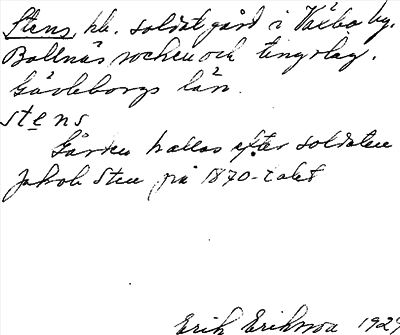 Stens, hb. soldatgård i Växbo by.
Bollnäs socken och tingslag.
Gävleborgs län.
stens
Gården kallas efter soldaten
Jakob Sten på 1870-talet
Erik Eriksson 1929